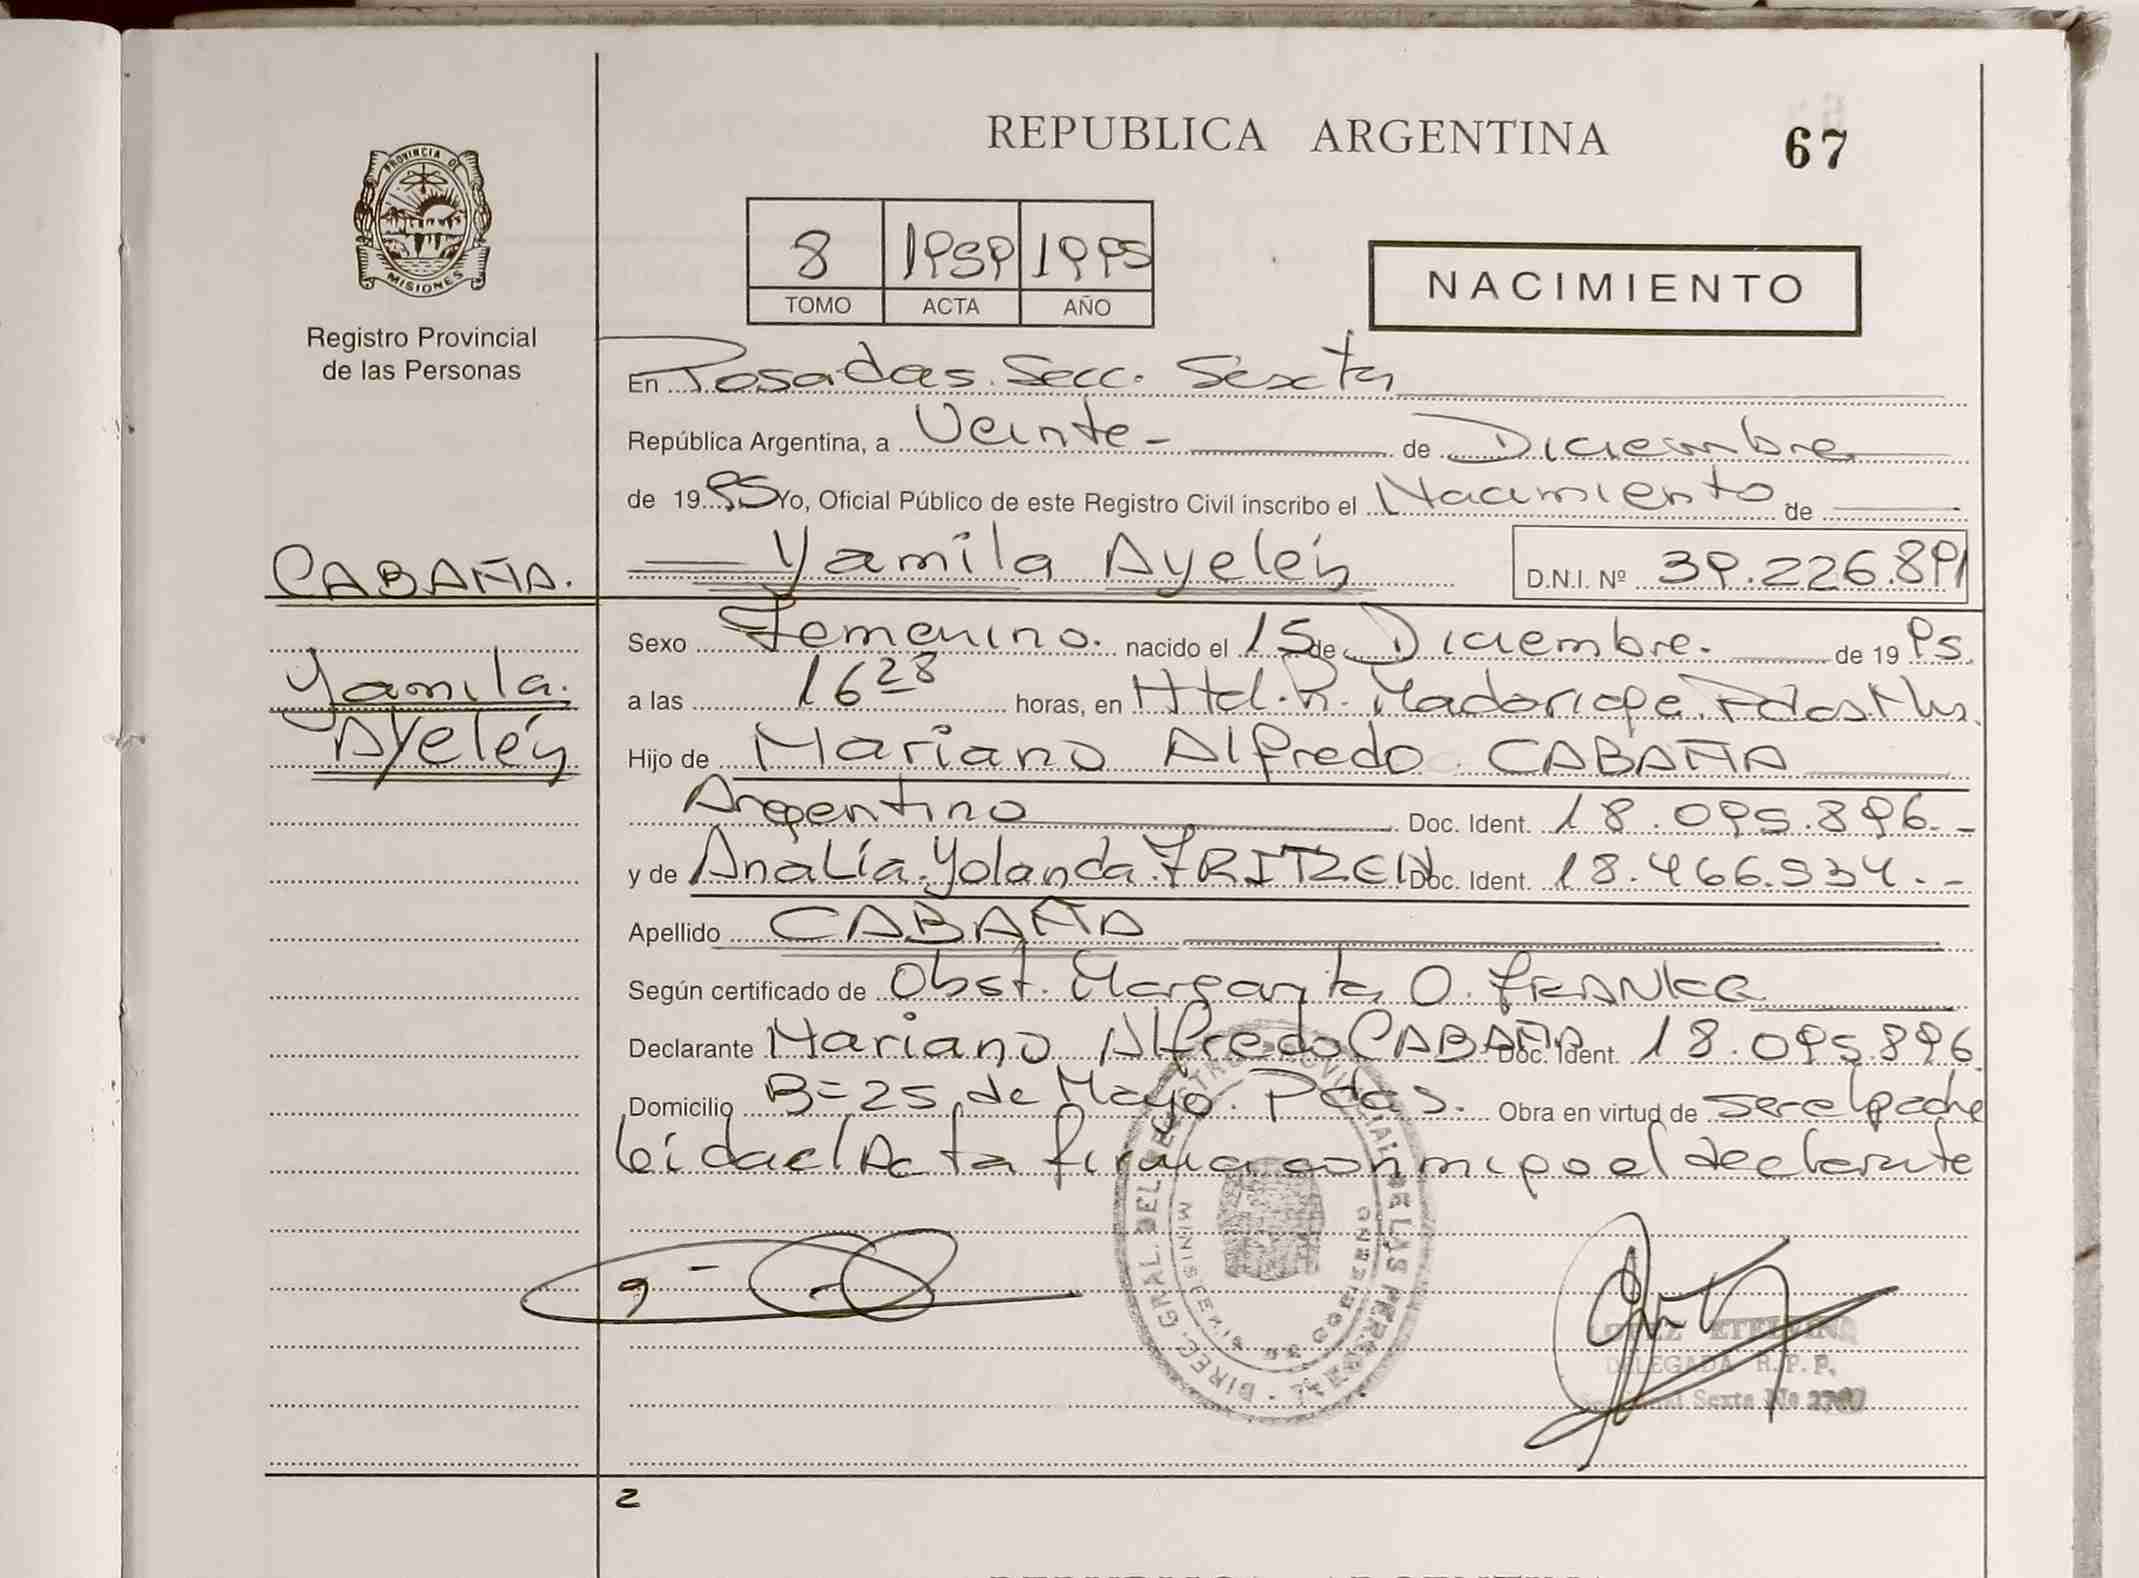 REPUBLICA ARGENTINA
67
PROVINCIA DE
MISIONES
Registro Provincial
de las Personas
8 1959 1995
TOMO ACTA AÑO
NACIMIENTO
En Posadas. Secc. Sexta
República Argentina, a Veinte - de Diciembre
de 1995 Yo, Oficial Público de este Registro Civil inscribo el Nacimiento de
CABAÑA.
Yamila Ayelén D.N.I. Nº 39.226.891
Sexo Femenino. nacido el 15 de Diciembre. de 1995.
Yamila.
Ayelén
a las 16 28 horas, en Htal. R. Madariaga. Pdas Mns.
Hijo de Mariano Alfredo CABAÑA
Argentino Doc. Ident. 18.095.896.-
y de Analía. Yolanda. FRITZEN Doc. Ident. 18.466.934.--
Apellido CABAÑA
Según certificado de Obst. Margarita O. FRANKE
Declarante Mariano Alfredo CABAÑA Doc. Ident. 18.095.896.
Domicilio B= 25 de Mayo. Pdas. Obra en virtud de ser el padre
leida el Acta firma conmigo el declarante
DIREC. GRAL. DEL REGISTRO PROVINCIAL DE LAS PERSONAS
ETELVINA
DELEGADA R. P. P.
Sexta No
2